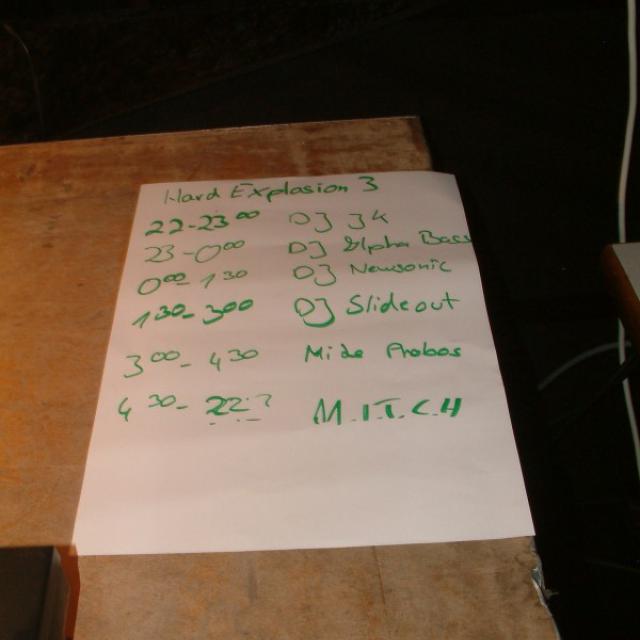 Hard Explosion 3
22-23⁰⁰ DJ J4
23-0⁰⁰ DJ Alpha Bass
0⁰⁰-1³⁰ DJ Newsonic
1³⁰-3⁰⁰ DJ Slideout
3⁰⁰-4³⁰ Probos
4³⁰-22? M.I.T.C.H